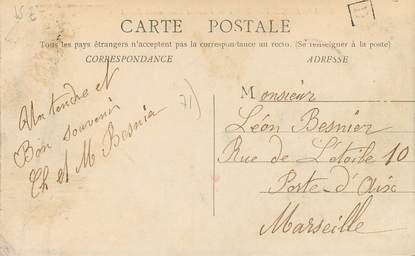 CARTE POSTALE
Tous les pays étrangers n'acceptent pas la correspondance au recto. (Se renseigner à la poste)
CORRESPONDANCE
ADRESSE
Un tendre et
Bon souvenir
Th et M Besnier
71)
Monsieur
Léon Besnier
Rue de L'étoile 10
Porte-d'Aix
Marseille